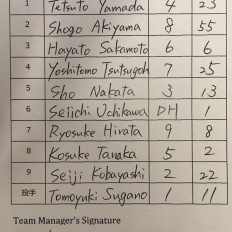 1 Tetsuto Yamada 4 23
2 Shogo Akiyama 8 55
3 Hayato Sakamoto 6 6
4 Yoshitomo Tsutsugoh 7 25
5 Sho Nakata 3 13
6 Seiichi Uchikawa DH 1
7 Ryosuke Hirata 9 8
8 Kosuke Tanaka 5 2
9 Seiji Kobayashi 2 22
投手 Tomoyuki Sugano 1 11
Team Manager's Signature